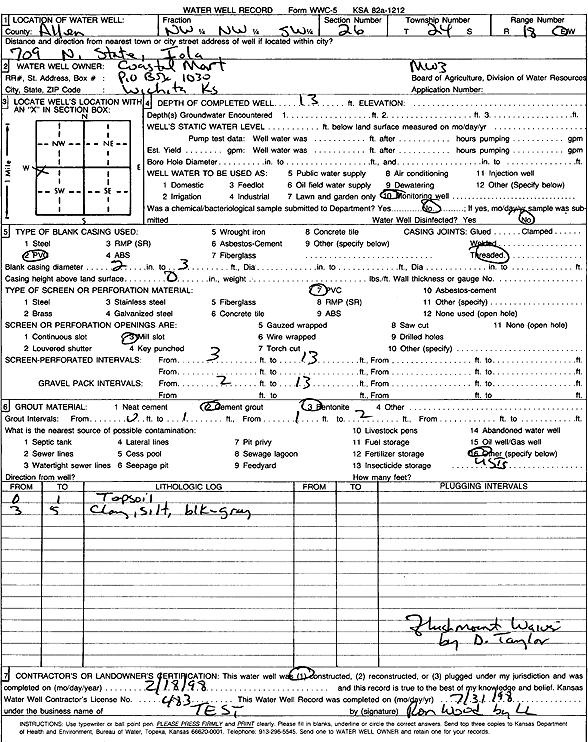 WATER WELL RECORD Form WWC-5 KSA 82a-1212
1 LOCATION OF WATER WELL: Fraction Section Number Township Number Range Number
County: Allen NW ¼ NW ¼ SW ¼ 26 T 24 S R 18 E/W
Distance and direction from nearest town or city street address of well if located within city?
709 N. State, Iola
2 WATER WELL OWNER: Coastal Mart MW3
RR#, St. Address, Box # : P.O Box 1030 Board of Agriculture, Division of Water Resources
City, State, ZIP Code : Wichita Ks Application Number:
3 LOCATE WELL'S LOCATION WITH AN "X" IN SECTION BOX:
N
NW NE
W X E
SW SE
S
1 Mile
4 DEPTH OF COMPLETED WELL 13 ft. ELEVATION:
Depth(s) Groundwater Encountered 1. ft. 2. ft. 3. ft.
WELL'S STATIC WATER LEVEL ft. below land surface measured on mo/day/yr
Pump test data: Well water was ft. after hours pumping gpm
Est. Yield gpm: Well water was ft. after hours pumping gpm
Bore Hole Diameter in. to ft., and in. to ft.
WELL WATER TO BE USED AS: 5 Public water supply 8 Air conditioning 11 Injection well
1 Domestic 3 Feedlot 6 Oil field water supply 9 Dewatering 12 Other (Specify below)
2 Irrigation 4 Industrial 7 Lawn and garden only 10 Monitoring well
Was a chemical/bacteriological sample submitted to Department? Yes No ; If yes, mo/day/yr sample was sub-
mitted Water Well Disinfected? Yes No
5 TYPE OF BLANK CASING USED: 5 Wrought iron 8 Concrete tile CASING JOINTS: Glued Clamped
1 Steel 3 RMP (SR) 6 Asbestos-Cement 9 Other (specify below) Welded
2 PVC 4 ABS 7 Fiberglass Threaded
Blank casing diameter 2 in. to 3 ft., Dia in. to ft., Dia in. to ft.
Casing height above land surface 0 in., weight lbs./ft. Wall thickness or gauge No.
TYPE OF SCREEN OR PERFORATION MATERIAL: 7 PVC 10 Asbestos-cement
1 Steel 3 Stainless steel 5 Fiberglass 8 RMP (SR) 11 Other (specify)
2 Brass 4 Galvanized steel 6 Concrete tile 9 ABS 12 None used (open hole)
SCREEN OR PERFORATION OPENINGS ARE: 5 Gauzed wrapped 8 Saw cut 11 None (open hole)
1 Continuous slot 3 Mill slot 6 Wire wrapped 9 Drilled holes
2 Louvered shutter 4 Key punched 7 Torch cut 10 Other (specify)
SCREEN-PERFORATED INTERVALS: From 3 ft. to 13 ft., From ft. to ft.
From ft. to ft., From ft. to ft.
GRAVEL PACK INTERVALS: From 2 ft. to 13 ft., From ft. to ft.
From ft. to ft., From ft. to ft.
6 GROUT MATERIAL: 1 Neat cement 2 Cement grout 3 Bentonite 4 Other
Grout Intervals: From 0 ft. to 1 ft., From 1 ft. to 2 ft., From ft. to ft.
What is the nearest source of possible contamination: 10 Livestock pens 14 Abandoned water well
1 Septic tank 4 Lateral lines 7 Pit privy 11 Fuel storage 15 Oil well/Gas well
2 Sewer lines 5 Cess pool 8 Sewage lagoon 12 Fertilizer storage 16 Other (specify below)
3 Watertight sewer lines 6 Seepage pit 9 Feedyard 13 Insecticide storage USTs
Direction from well? How many feet?
FROM TO LITHOLOGIC LOG FROM TO PLUGGING INTERVALS
0 1 Topsoil
3 5 Clay, silt, blk-gray
Flushmount Waiver
by D. Taylor
7 CONTRACTOR'S OR LANDOWNER'S CERTIFICATION: This water well was (1) constructed, (2) reconstructed, or (3) plugged under my jurisdiction and was
completed on (mo/day/year) 2/18/98 and this record is true to the best of my knowledge and belief. Kansas
Water Well Contractor's License No. 483 This Water Well Record was completed on (mo/day/yr) 7/31/98
under the business name of TEST by (signature) Ron Wood by LL
INSTRUCTIONS: Use typewriter or ball point pen. PLEASE PRESS FIRMLY and PRINT clearly. Please fill in blanks, underline or circle the correct answers. Send top three copies to Kansas Department
of Health and Environment, Bureau of Water, Topeka, Kansas 66620-0001. Telephone: 913-296-5545. Send one to WATER WELL OWNER and retain one for your records.